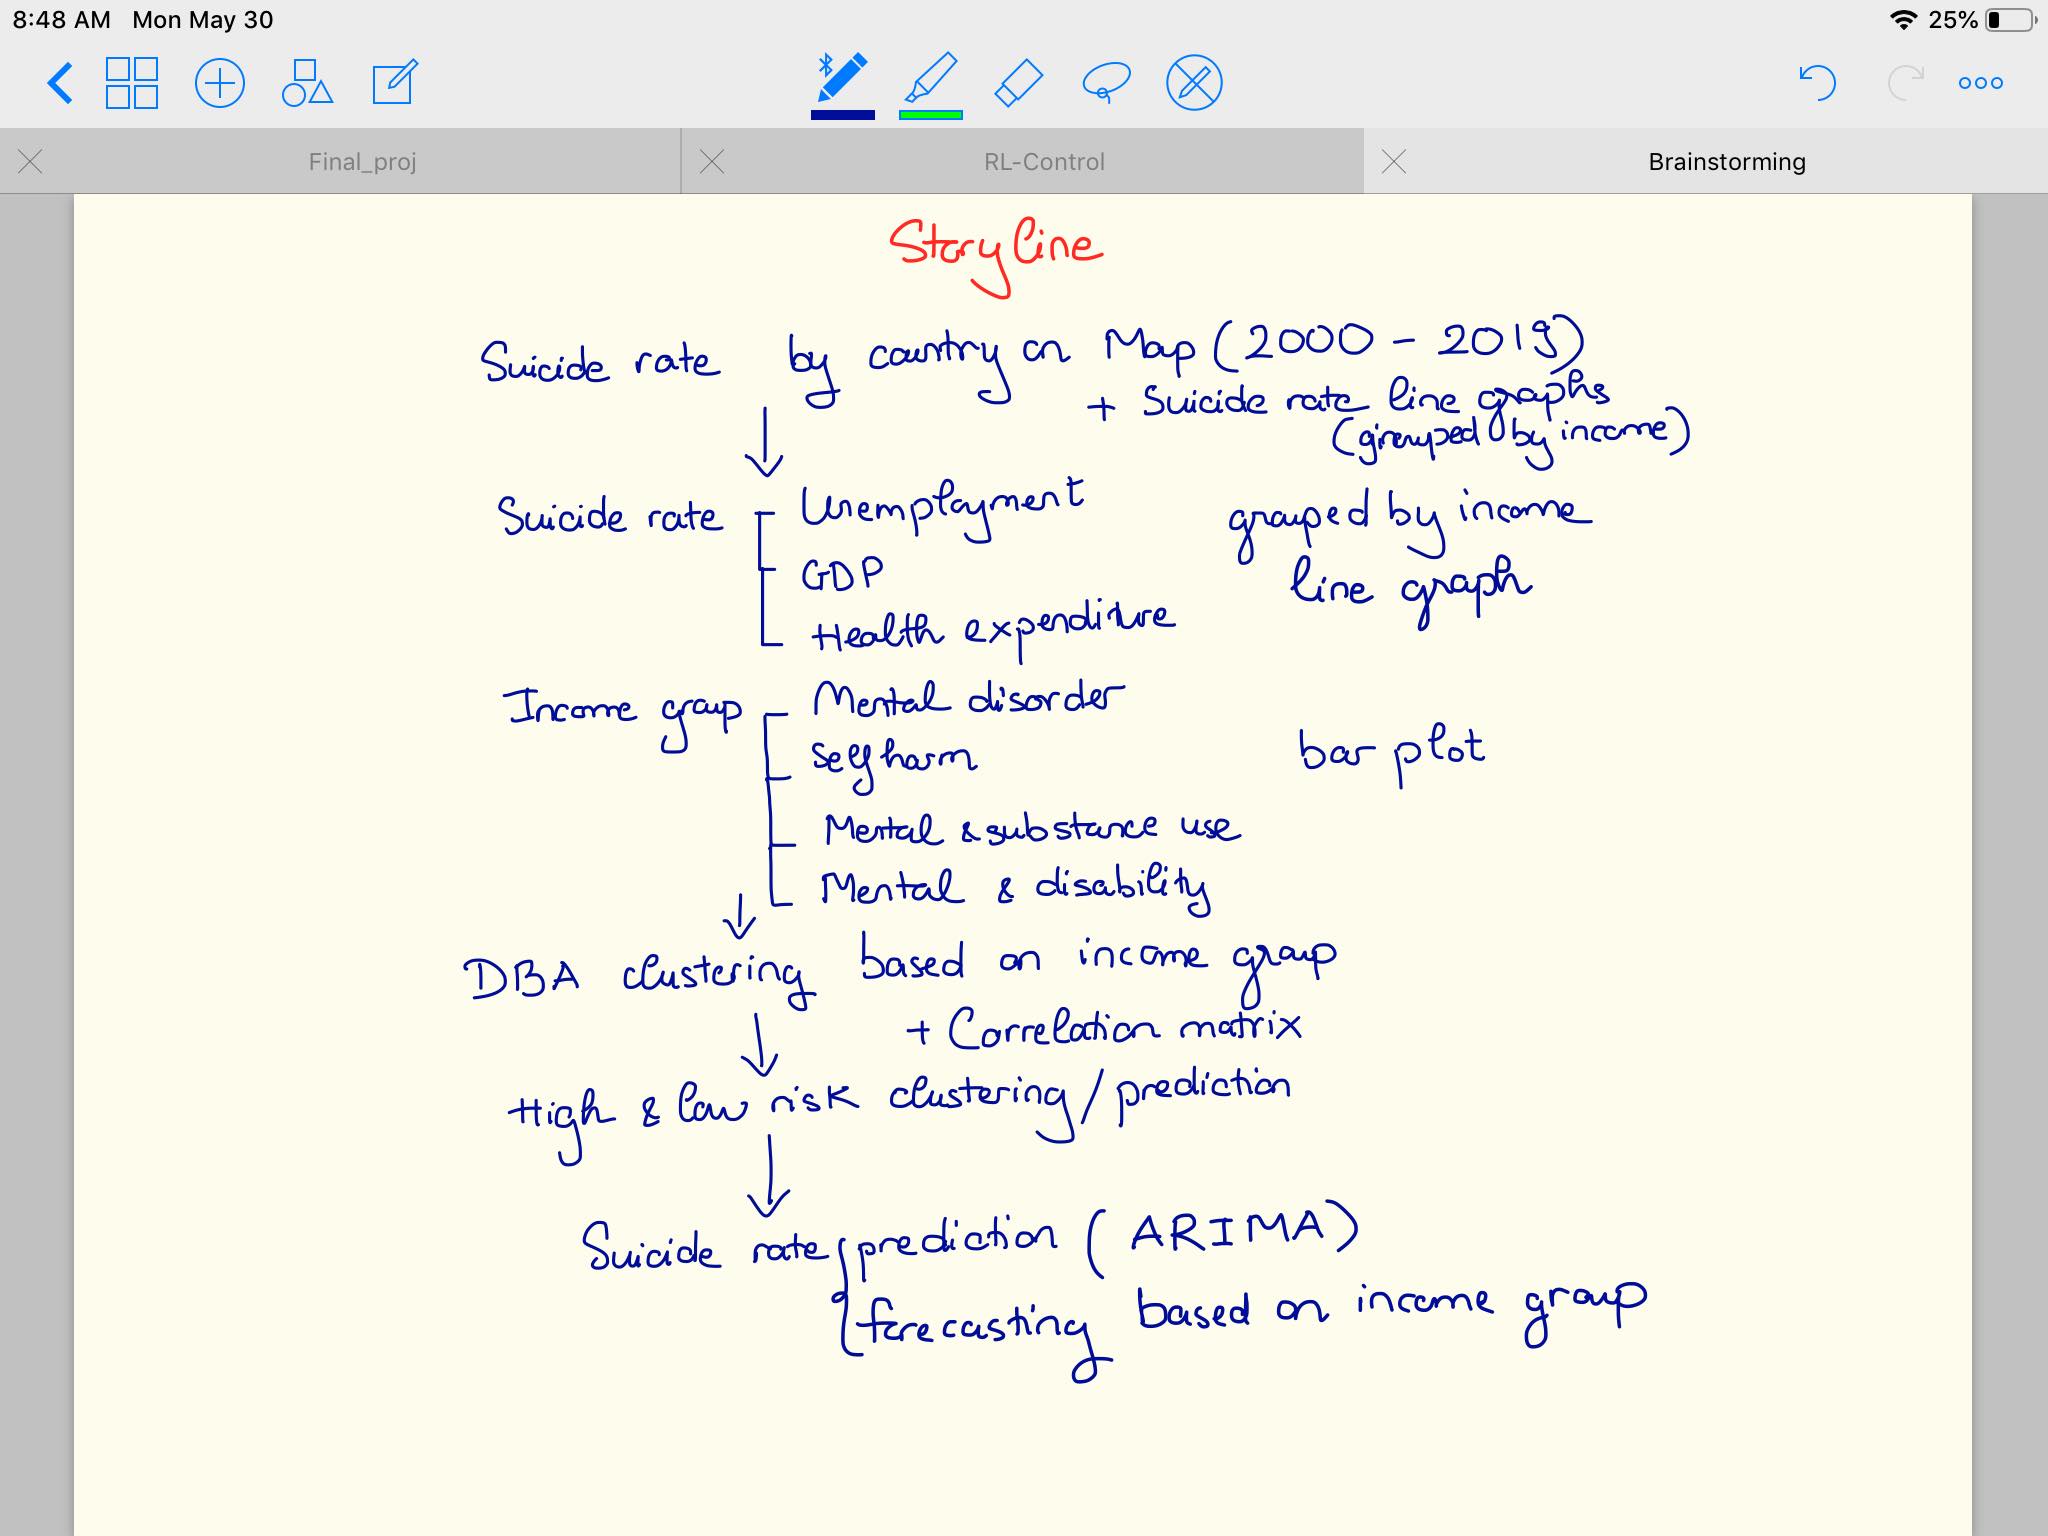 8:48 AM Mon May 30
25%
Final_proj
RL-Control
Brainstorming
Storyline
Suicide rate by country on Map (2000 - 2019)
+ Suicide rate line graphs
(grouped by income)
Suicide rate
Unemployment
GDP
Health expenditure
grouped by income
line graph
Income group
Mental disorder
Self harm
Mental & substance use
Mental & disability
bar plot
DBA clustering based on income group
+ Correlation matrix
High & low risk clustering/prediction
Suicide rate prediction (ARIMA)
forecasting based on income group